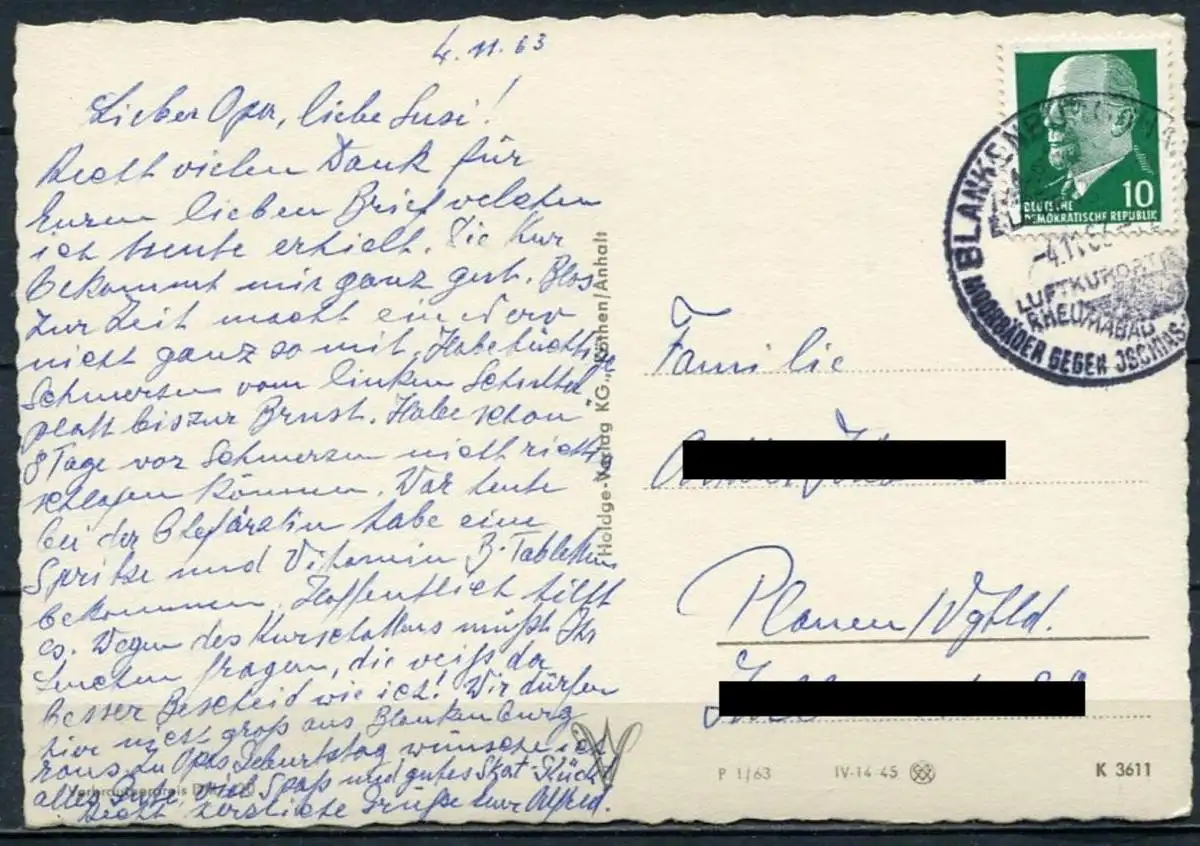 4.11.63
Lieber Opa, liebe Susi!
Recht vielen Dank für
Euren lieben Brief welchen
ich heute erhielt. Die Kur
bekommt mir ganz gut. Blos
zur Zeit macht ein Nerv
nicht ganz so mit, Habe tüchtige
Schmerzen vom linken Schulter
platt bis zur Brust. Habe schon
8 Tage vor Schmerzen nicht richtig
schlafen können. War heute
bei der habe eine
Spritze und Vitamin B-Tabletten
bekommen, Hoffentlich hilft
es. Wegen des Kurschattens müßt Ihr
Lenchen fragen, die weiß da
besser Bescheid wie ich! Wir dürfen
hier nicht groß aus Blankenburg
raus. Zu Opas Geburtstag wünsche ich
alles Gute, viel Spaß und gutes Skat-Glück!
Recht herzliche Grüße Euer Alfred.
Verbraucherpreis DM 0,20
Holdge-Verlag KG., Köthen/Anhalt
10
DEUTSCHE
DEMOKRATISCHE REPUBLIK
BLANKENBURG
-4.11.63
LUFTKURORT
RHEUMABAD
MOORBÄDER GEGEN JSCHIAS
Familie
Plauen/Vgtld.
P 1/63 IV-14-45 K 3611